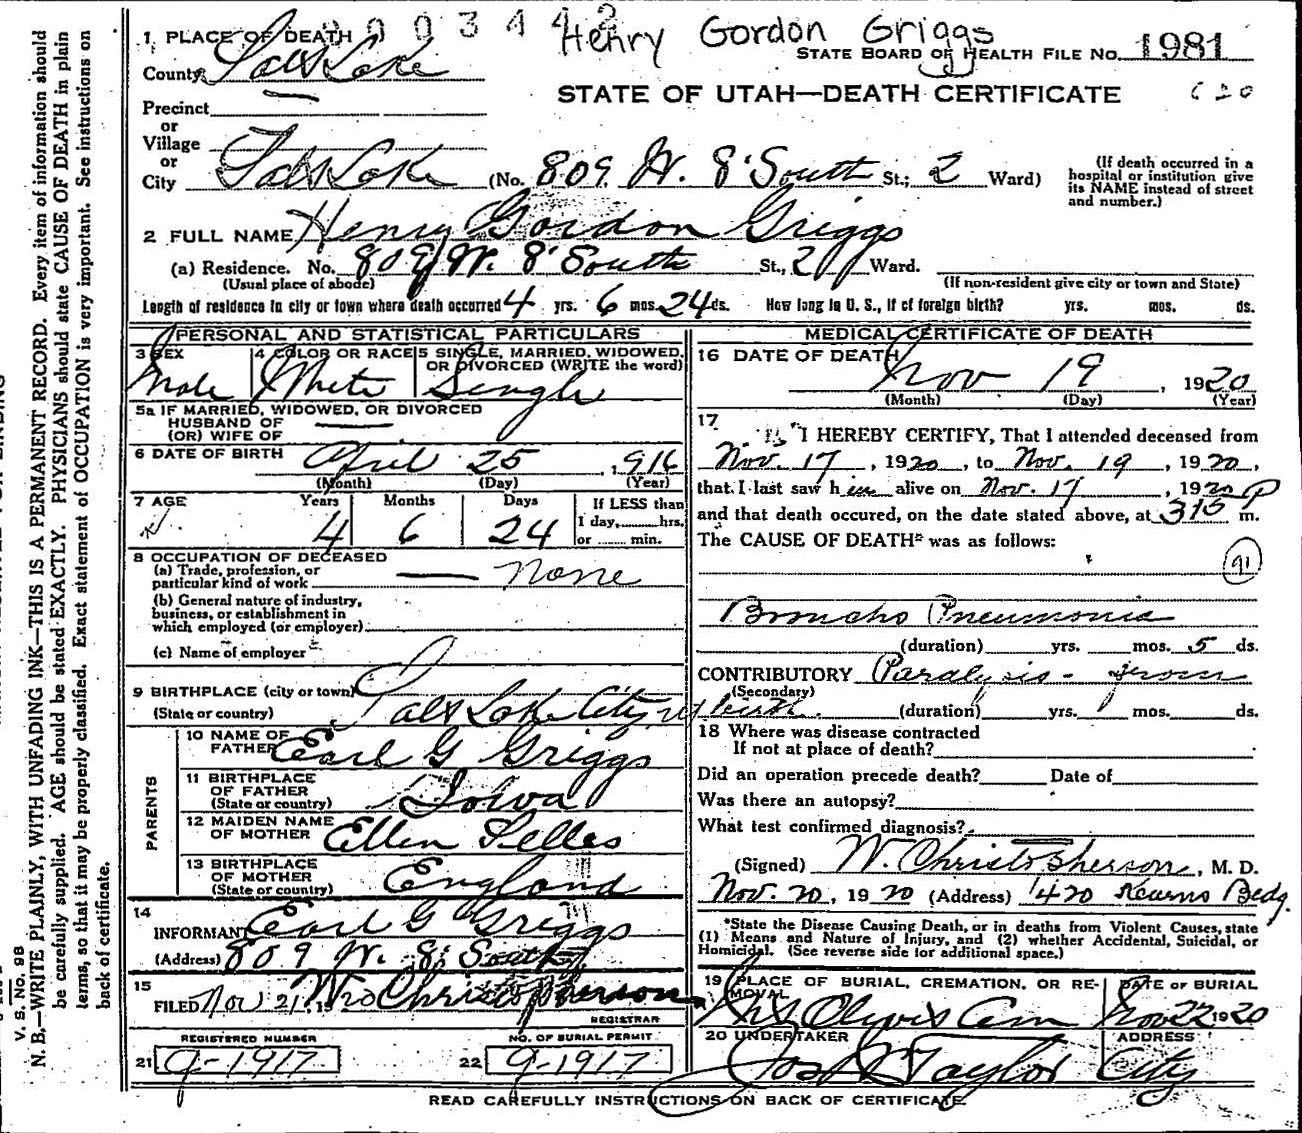 003442
Henry Gordon Griggs
1 PLACE OF DEATH
STATE BOARD OF HEALTH FILE No. 1981
County Salt Lake
STATE OF UTAH—DEATH CERTIFICATE
Precinct
or
Village
or
City Salt Lake (No. 809 W. 8' South St.; 2 Ward)
(If death occurred in a hospital or institution give its NAME instead of street and number.)
2 FULL NAME Henry Gordon Griggs
(a) Residence. No. 809 W. 8' South St., 2 Ward.
(Usual place of abode) (If non-resident give city or town and State)
Length of residence in city or town where death occurred 4 yrs. 6 mos. 24 ds. How long in U. S., if of foreign birth? yrs. mos. ds.
PERSONAL AND STATISTICAL PARTICULARS
3 SEX Male
4 COLOR OR RACE White
5 SINGLE, MARRIED, WIDOWED, OR DIVORCED (WRITE the word) Single
5a IF MARRIED, WIDOWED, OR DIVORCED
HUSBAND OF
(OR) WIFE OF
6 DATE OF BIRTH April 25, 1916
(Month) (Day) (Year)
7 AGE Years Months Days If LESS than
4 6 24 1 day, hrs.
or min.
8 OCCUPATION OF DECEASED
(a) Trade, profession, or
particular kind of work none
(b) General nature of industry,
business, or establishment in
which employed (or employer)
(c) Name of employer
9 BIRTHPLACE (city or town)
(State or country) Salt Lake City
PARENTS
10 NAME OF FATHER Earl G Griggs
11 BIRTHPLACE OF FATHER
(State or country) Iowa
12 MAIDEN NAME OF MOTHER Ellen
13 BIRTHPLACE OF MOTHER
(State or country) England
14
INFORMANT Earl G Griggs
(Address) 809 W. 8' South
15
FILED Nov 21, Christopherson
REGISTRAR
REGISTERED NUMBER NO. OF BURIAL PERMIT
21 9-1917 22 9-1917
MEDICAL CERTIFICATE OF DEATH
16 DATE OF DEATH
Nov 19, 1920
(Month) (Day) (Year)
17
I HEREBY CERTIFY, That I attended deceased from
Nov. 17, 1920, to Nov. 19, 1920,
that I last saw him alive on Nov. 17, 1920
and that death occured, on the date stated above, at 315 P m.
The CAUSE OF DEATH* was as follows:
91
Broncho Pneumonia
(duration) yrs. mos. 5 ds.
CONTRIBUTORY Paralysis - from
(Secondary) birth. (duration) yrs. mos. ds.
18 Where was disease contracted
If not at place of death?
Did an operation precede death? Date of
Was there an autopsy?
What test confirmed diagnosis?
(Signed) W. Christopherson, M. D.
Nov. 20, 1920 (Address) 420 Kearns Bldg.
*State the Disease Causing Death, or in deaths from Violent Causes, state
(1) Means and Nature of Injury, and (2) whether Accidental, Suicidal, or
Homicidal. (See reverse side for additional space.)
19 PLACE OF BURIAL, CREMATION, OR REMOVAL
Mt Olivet Cem
DATE OF BURIAL
Nov 22 1920
20 UNDERTAKER
Jos Taylor
ADDRESS
City
READ CAREFULLY INSTRUCTIONS ON BACK OF CERTIFICATE.
V. S. No. 9B
N. B.—WRITE PLAINLY, WITH UNFADING INK—THIS IS A PERMANENT RECORD. Every item of information should
be carefully supplied. AGE should be stated EXACTLY. PHYSICIANS should state CAUSE OF DEATH in plain
terms, so that it may be properly classified. Exact statement of OCCUPATION is very important. See instructions on
back of certificate.